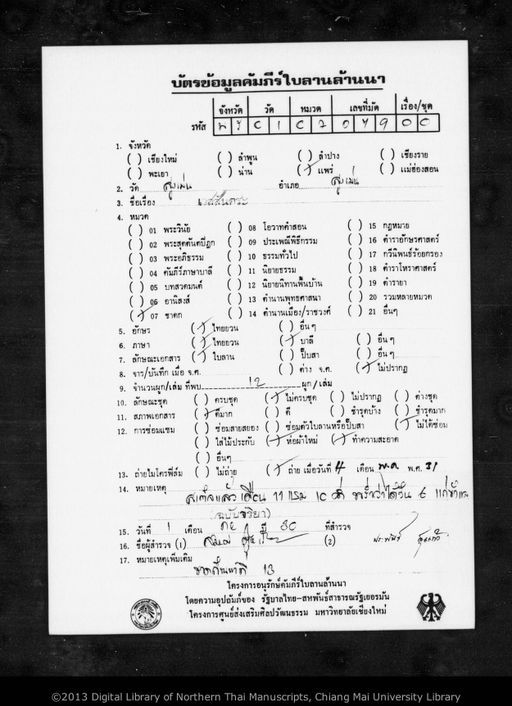 บัตรข้อมูลคัมภีร์ใบลานล้านนา
จังหวัด วัด หมวด เลขที่มัด เรื่อง/ชุด
รหัส
1. จังหวัด
( ) เชียงใหม่ ( ) ลำพูน ( ) ลำปาง ( ) เชียงราย
( ) พะเยา ( ) น่าน (/) แพร่ ( ) แม่ฮ่องสอน
2. วัด สูงเม่น อำเภอ สูงเม่น
3. ชื่อเรื่อง เวสสันตระ
4. หมวด
( ) 01 พระวินัย ( ) 08 โอวาทคำสอน ( ) 15 กฎหมาย
( ) 02 พระสุตตันตปิฎก ( ) 09 ประเพณีพิธีกรรม ( ) 16 ตำราอักษรศาสตร์
( ) 03 พระอภิธรรม ( ) 10 ธรรมทั่วไป ( ) 17 กวีนิพนธ์ร้อยกรอง
( ) 04 คัมภีร์ภาษาบาลี ( ) 11 นิยายธรรม ( ) 18 ตำราโหราศาสตร์
( ) 05 บทสวดมนต์ ( ) 12 นิยายนิทานพื้นบ้าน ( ) 19 ตำรายา
( ) 06 อานิสงส์ ( ) 13 ตำนานพุทธศาสนา ( ) 20 รวมหลายหมวด
(/) 07 ชาดก ( ) 14 ตำนานเมือง/ราชวงศ์ ( ) 21 อื่นๆ
5. อักษร (/) ไทยยวน ( ) อื่นๆ
6. ภาษา (/) ไทยยวน (/) บาลี ( ) อื่นๆ
7. ลักษณะเอกสาร (/) ใบลาน ( ) ปั๊บสา ( ) อื่นๆ
8. จาร/บันทึก เมื่อ จ.ศ. ( ) ค่าง จ.ศ. (/) ไม่ปรากฏ
9. จำนวนผูก/เล่ม ที่พบ 12 ผูก/เล่ม
10. ลักษณะชุด ( ) ครบชุด (/) ไม่ครบชุด ( ) ไม่ปรากฏ ( ) ต่างชุด
11. สภาพเอกสาร (/) ดีมาก ( ) ดี ( ) ชำรุดบ้าง ( ) ชำรุดมาก
12. การซ่อมแซม ( ) ซ่อมสายสยอง ( ) ซ่อมตัวใบลานหรือปั๊บสา (/) ไม่ได้ซ่อม
( ) ใส่ไม้ประกับ (/) ห่อผ้าใหม่ (/) ทำความสะอาด
( ) อื่นๆ
13. ถ่ายไมโครฟิล์ม ( ) ไม่ถ่าย (/) ถ่าย เมื่อวันที่ 4 เดือน พ.ค. พ.ศ. 31
14. หมายเหตุ
15. วันที่ 1 เดือน กย ปี 30 ที่สำรวจ
16. ชื่อผู้สำรวจ (1) (2)
17. หมายเหตุเพิ่มเติม
13
โครงการอนุรักษ์คัมภีร์ใบลานล้านนา
โดยความอุปถัมภ์ของ รัฐบาลไทย-สหพันธ์สาธารณรัฐเยอรมัน
โครงการศูนย์ส่งเสริมศิลปวัฒนธรรม มหาวิทยาลัยเชียงใหม่
©2013 Digital Library of Northern Thai Manuscripts, Chiang Mai University Library